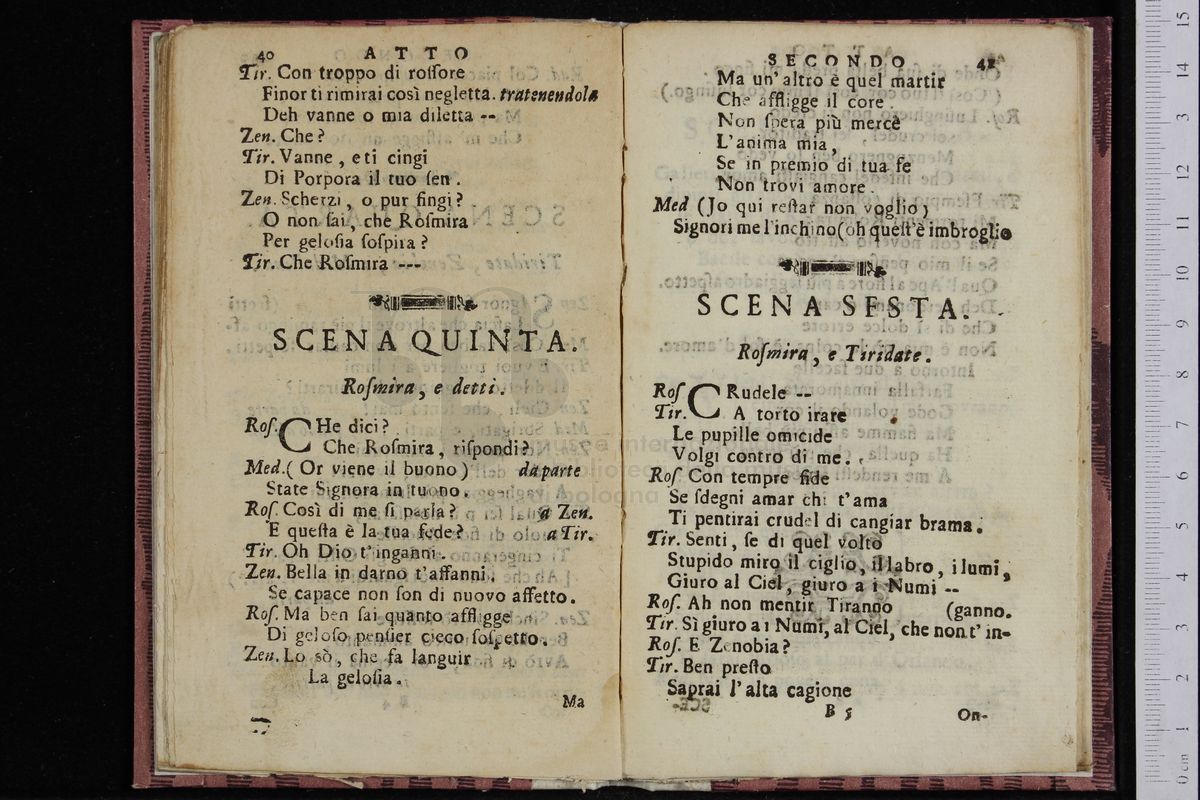 40 ATTO
Tir. Con troppo di roſſore
Finor ti rimirai così negletta. tratenendola
Deh vanne o mia diletta --
Zen. Che?
Tir. Vanne, e ti cingi
Di Porpora il tuo ſen.
Zen. Scherzi, o pur fingi?
O non ſai, che Roſmira
Per geloſia ſoſpira?
Tir. Che Roſmira ---
SCENA QUINTA.
Roſmira, e detti.
Roſ. CHe dici?
Che Roſmira, riſpondi?
Med. ( Or viene il buono) da parte
State Signora in tuono.
Roſ. Così di me ſi parla? a Zen.
E queſta è la tua fede? a Tir.
Tir. Oh Dio t'inganni.
Zen. Bella in darno t'affanni,
Se capace non ſon di nuovo affetto.
Roſ. Ma ben ſai quanto affligge
Di geloſo penſier cieco ſoſpetto.
Zen. Lo sò, che fa languir
La geloſia.
Ma
SECONDO 41
Ma un'altro è quel martir
Che affligge il core.
Non ſpera più mercè
L'anima mia,
Se in premio di tua fe
Non trovi amore.
Med (Jo qui reſtar non voglio)
Signori me l'inchino (oh queſt'è imbroglio
SCENA SESTA.
Roſmira, e Tiridate.
Roſ CRudele --
Tir. A torto irate
Le pupille omicide
Volgi contro di me.
Roſ Con tempre fide
Se ſdegni amar chi t'ama
Ti pentirai crudel di cangiar brama.
Tir. Senti, ſe di quel volto
Stupido miro il ciglio, il labro, i lumi,
Giuro al Ciel, giuro a i Numi --
Roſ. Ah non mentir Tiranno (ganno.
Tir. Sì giuro a i Numi, al Ciel, che non t' in-
Roſ. E Zenobia?
Tir. Ben preſto
Saprai l'alta cagione
B 5 On-